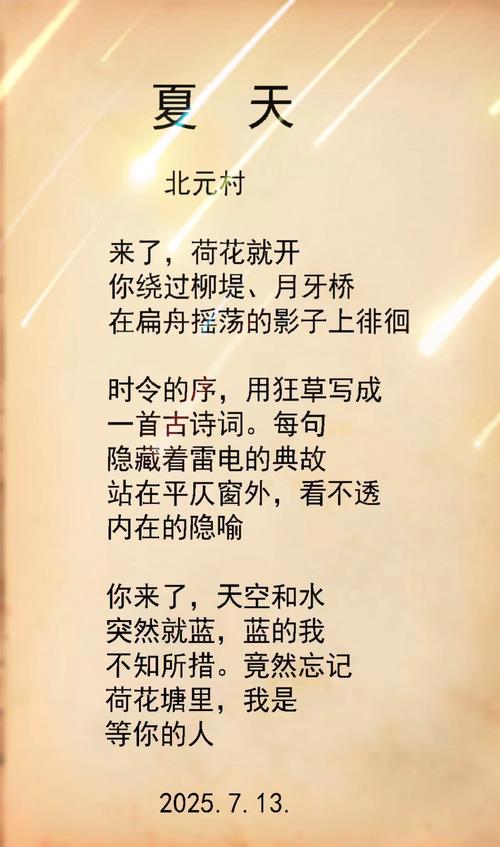 夏 天
北元村
来了，荷花就开
你绕过柳堤、月牙桥
在扁舟摇荡的影子上徘徊
时令的序，用狂草写成
一首古诗词。每句
隐藏着雷电的典故
站在平仄窗外，看不透
内在的隐喻
你来了，天空和水
突然就蓝，蓝的我
不知所措。竟然忘记
荷花塘里，我是
等你的人
2025.7.13.